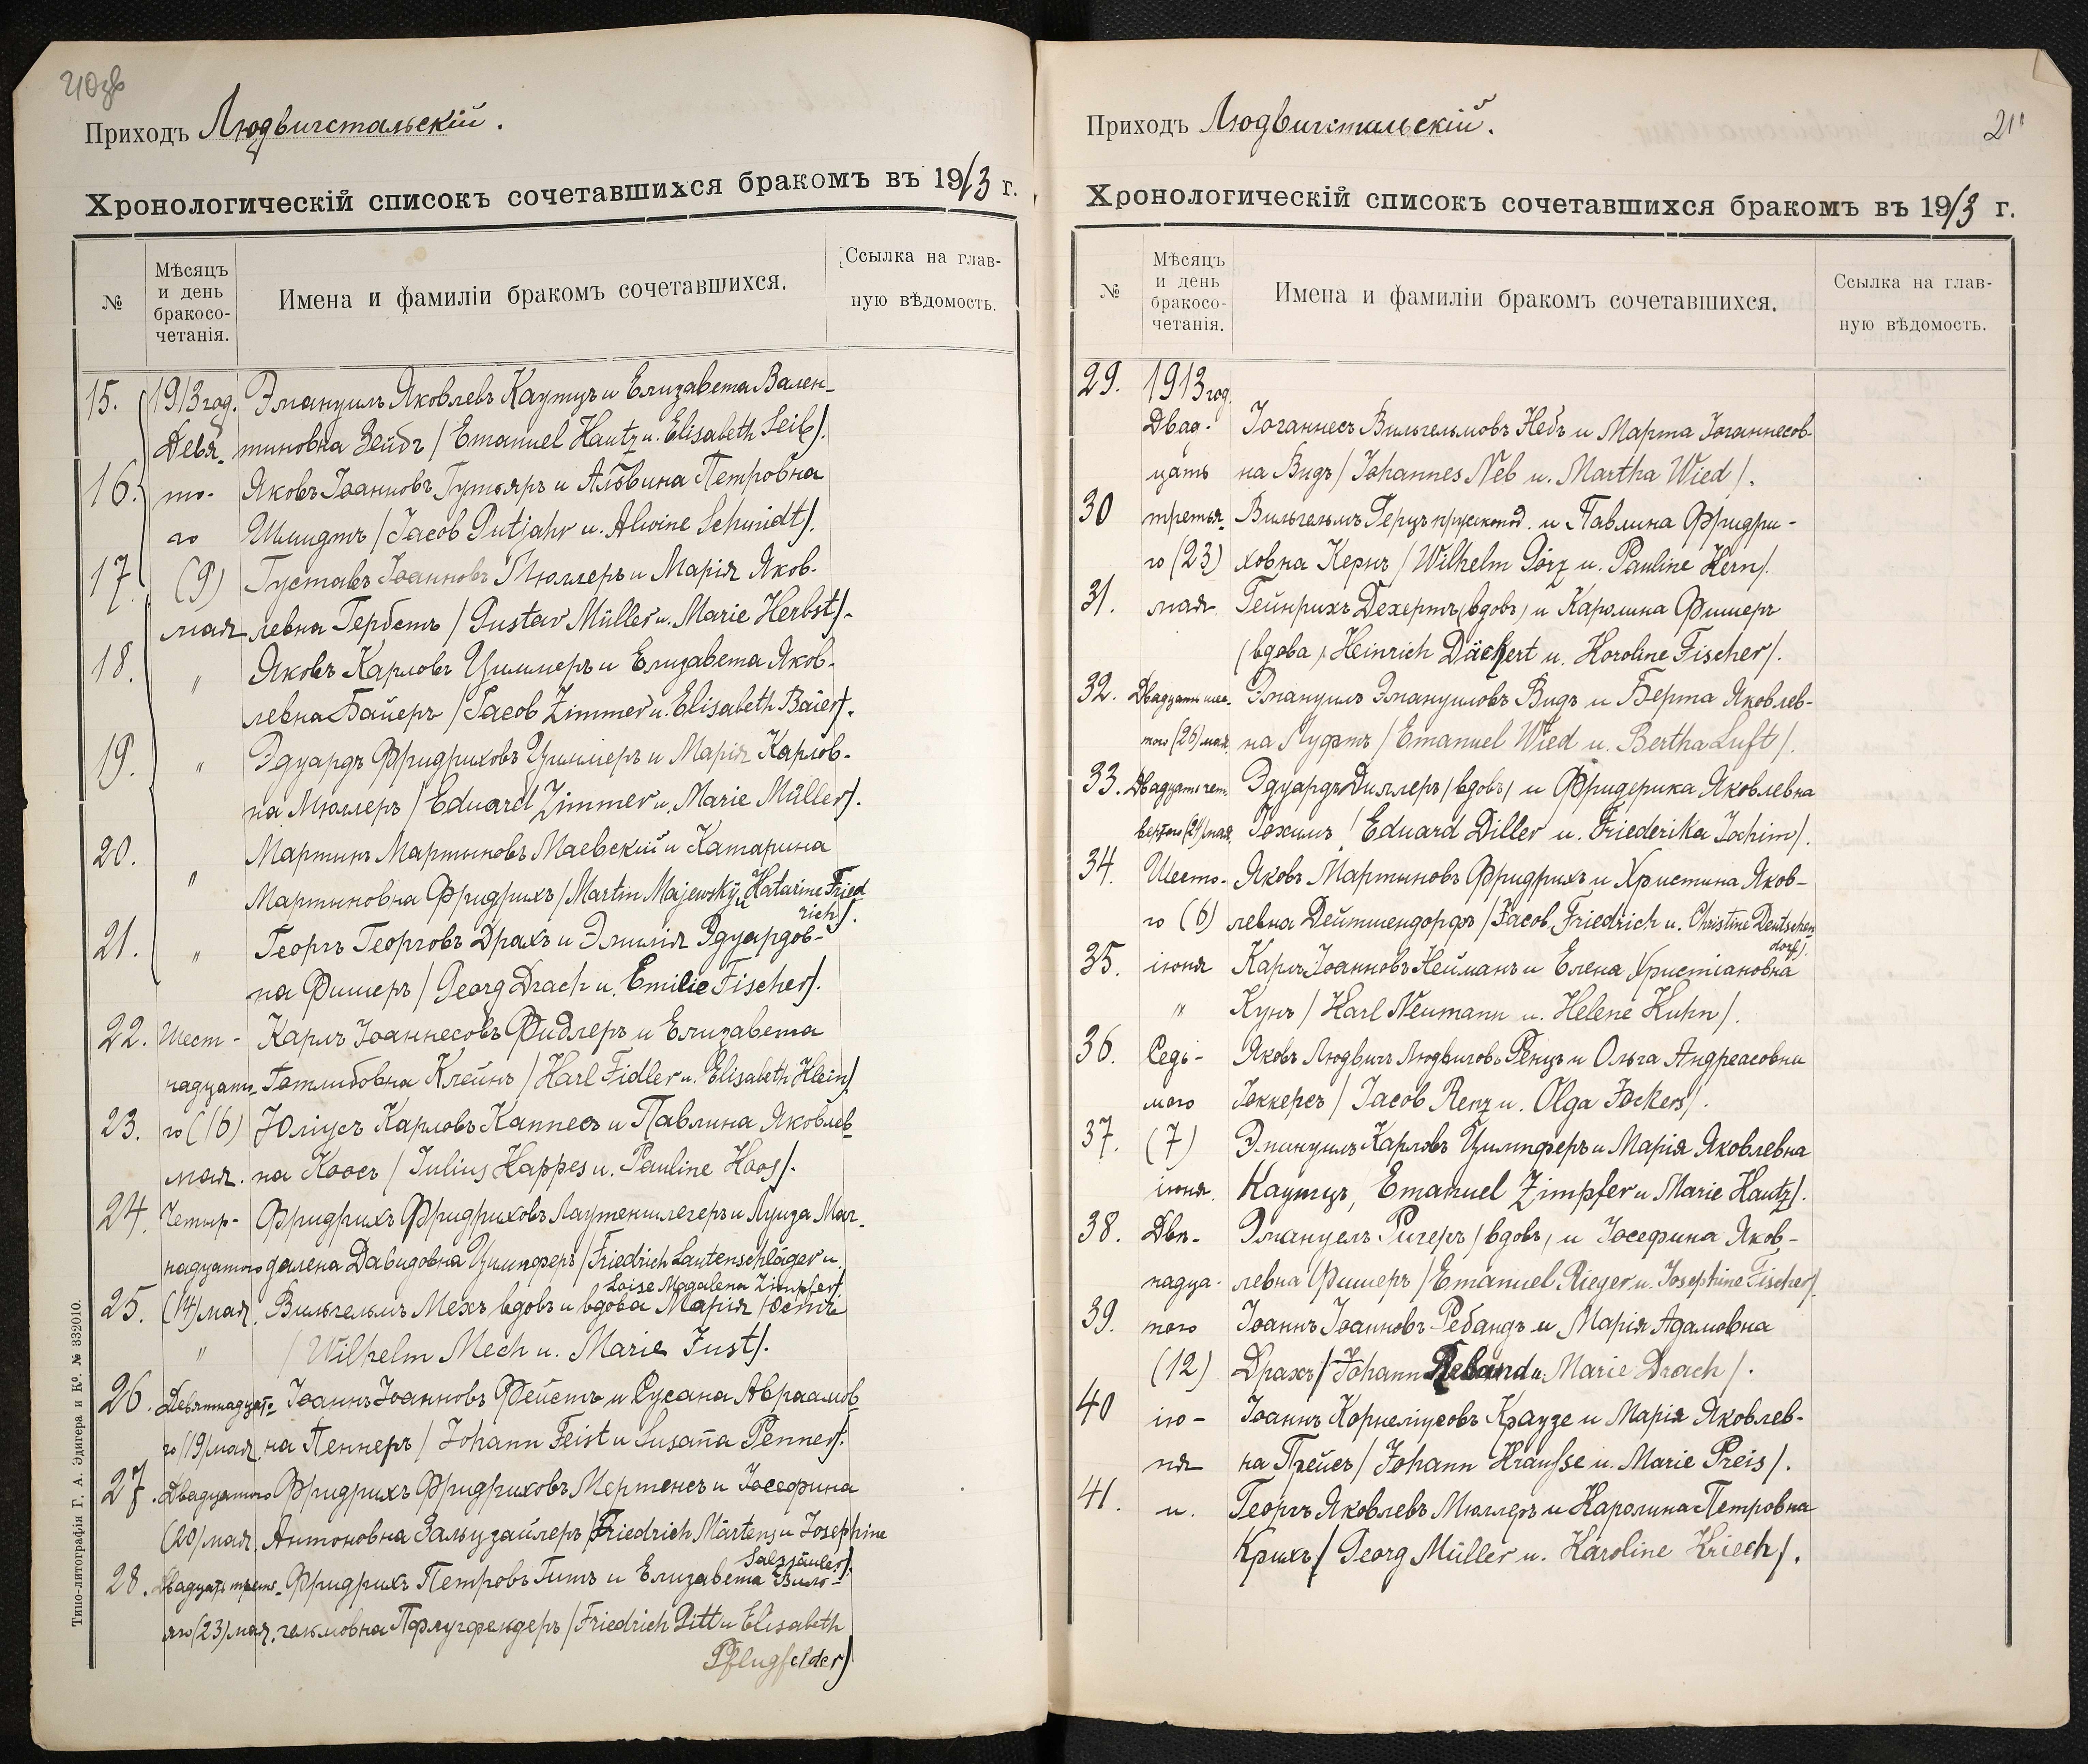 Приходъ Людвигстальскій.
Хронологическій списокъ сочетавшихся бракомъ въ 1913 г.
№
Мѣсяцъ и день бракосо-четанія.
Имена и фамиліи бракомъ сочетавшихся.
Ссылка на глав-
ную вѣдомость.
15. 1913 год. Эмануилъ Яковлевъ Каутцъ и Елизавета Вален-
Девя- тиновна Зейбъ / Emanuel Hautz u. Elisabeth Seib/.
16. то- Яковъ Іоанновъ Гутьяръ и Альвина Петровна
го Шмидтъ / Jacob Gutjahr u. Alwine Schmidt/.
17. (9) Густавъ Іоанновъ Мюллеръ и Марія Яков-
мая левна Гербстъ / Gustav Müller u. Marie Herbst/.
18. " Яковъ Карловъ Циммеръ и Елизавета Яков-
левна Байеръ / Jacob Zimmer u. Elisabeth Baier/.
19. " Эдуардъ Фридриховъ Циммеръ и Марія Карлов-
на Мюллеръ / Eduard Zimmer u. Marie Müller/.
20. Мартинъ Мартыновъ Маевскій и Катарина
" Мартыновна Фридрихъ / Martin Majewsky u. Katarine Fried
rich/.
21. " Георгъ Георговъ Драхъ и Эмилія Эдуардов-
на Фишеръ / Georg Drach u. Emilie Fischer/.
22. Шест- Карлъ Іоаннесовъ Фидлеръ и Елизавета
надцата- Готлибовна Клейнъ / Karl Fidler u. Elisabeth Klein/
23. го (16) Юліусъ Карловъ Каппесъ и Павлина Яковлев-
мая. на Коосъ / Julius Kappes u. Pauline Koos/.
24. Четыр- Фридрихъ Фридриховъ Лаутеншлегеръ и Луиза Маг-
надцатого далена Давидовна Цимпферъ / Friedrich Lautenschläger u.
Loise Magdalena Zimpfer/
25. (14) мая. Вильгельмъ Мехъ вдовъ и вдова Марія Юстъ
" / Wilhelm Mech u. Marie Just/.
26. Девятнадцата- Іоаннъ Іоанновъ Фейстъ и Сусана Авраамов-
го (19) мая. на Пеннеръ / Johann Feist u. Susana Penner/.
27. Двадцатого Фридрихъ Фридриховъ Мертенсъ и Іосефина
(20) мая. Антоновна Зальцзайлеръ / Friedrich Märtens u. Josephine
Salzsäuler/.
28. Двадцать треть- Фридрихъ Петровъ Гитъ и Елизавета Виль-
яго (23) мая. гельмовна Пфлугфельдеръ / Friedrich Gitt u. Elisabeth
Pflugfelder/
Типо-литографія Г. А. Эдигера и Ко. № 332010.
21
Приходъ Людвигстальскій.
Хронологическій списокъ сочетавшихся бракомъ въ 1913 г.
№
Мѣсяцъ и день бракосо-четанія.
Имена и фамиліи бракомъ сочетавшихся.
Ссылка на глав-
ную вѣдомость.
29. 1913 год.
Двад- Іоганнесъ Вильгельмовъ Небъ и Марта Іоганнесов-
цать на Видъ / Johannes Neb u. Martha Wied/.
30 третья- Вильгельмъ Герцъ прусскопод. и Павлина Фридри-
го (23) ховна Кернъ / Wilhelm Görz u. Pauline Kern/.
31. мая Гейнрихъ Дехертъ (вдовъ) и Каролина Фишеръ
(вдова). Heinrich Däckert u. Koroline Fischer/.
32. Двадцать шес- Эмануилъ Эмануиловъ Видъ и Берта Яковлев-
того (26) мая. на Луфтъ / Emanuel Wied u. Bertha Luft/.
33. Двадцать чет- Эдуардъ Диллеръ / вдовъ / и Фридерика Яковлевна
вертого (24) мая. Іохимъ / Eduard Diller u. Friederika Jochim/.
34. Шесто- Яковъ Мартыновъ Фридрихъ и Христина Яков-
го (6) левна Дейтшендорфъ / Jacob Friedrich u. Christine Deutschen
dorf/.
35. іюня Карлъ Іоанновъ Нейманъ и Елена Христіановна
" Кунъ / Karl Neumann u. Helene Kuhn/.
36. Седь- Яковъ Людвигъ Людвиговъ Ренцъ и Ольга Андреасовна
мого Іоккерсъ / Jacob Renz u. Olga Jockers/.
37. (7) Эмануилъ Карловъ Цимпферъ и Марія Яковлевна
іюня. Каутцъ, Emanuel Zimpfer u. Marie Hautz/.
38. Две- Эмануелъ Ригеръ / вдовъ / и Іосефина Яков-
надца- левна Фишеръ / Emanuel Rieger u. Josephine Fischer/
39. того Іоаннъ Іоанновъ Ребандъ и Марія Адамовна
(12) Драхъ / Johann Reband u. Marie Drach/.
40 ію- Іоаннъ Корнеліусовъ Краузе и Марія Яковлев-
ня на Прейсъ / Johann Krausse u. Marie Preis/.
41. и. Георгъ Яковлевъ Мюллеръ и Каролина Петровна
Крихъ / Georg Müller u. Karoline Kriech/.